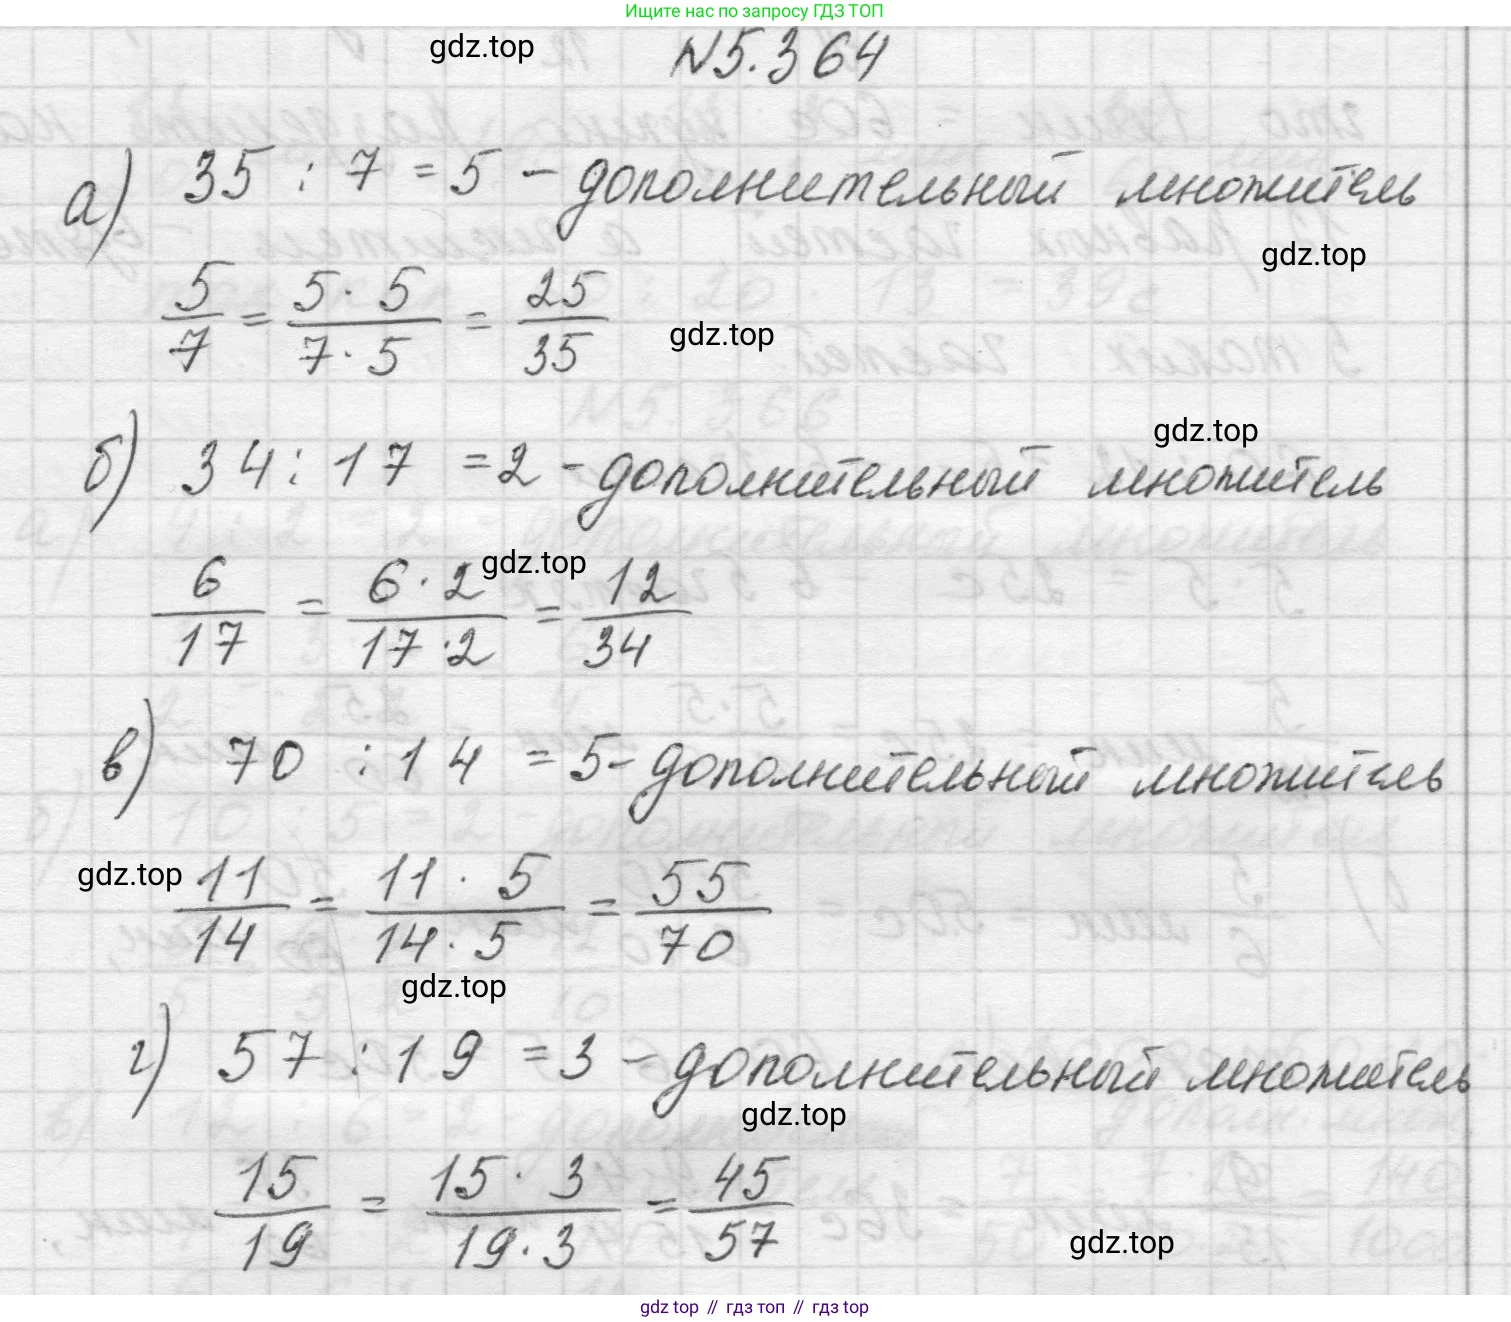 Ищите нас по запросу ГДЗ ТОП
gdz.top
N5.364
а) 35 : 7 = 5 – дополнительный множитель
gdz.top
5/7 = 5·5/7·5 = 25/35
gdz.top
gdz.top
б) 34 : 17 = 2 – дополнительный множитель
gdz.top
6/17 = 6·2/17·2 = 12/34
в) 70 : 14 = 5 – дополнительный множитель
gdz.top
11/14 = 11·5/14·5 = 55/70
gdz.top
г) 57 : 19 = 3 – дополнительный множитель
gdz.top
15/19 = 15·3/19·3 = 45/57
gdz.top
gdz top // гдз топ // гдз top